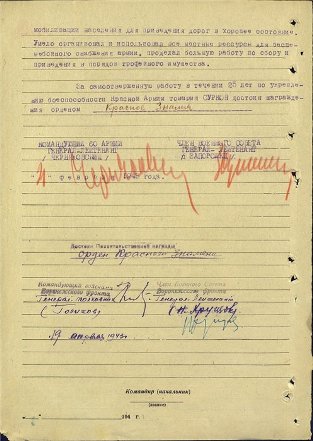 мобилизации населения для приведения дорог в хорошее состояние.
Умело организовал и использовал все местные ресурсы для бесперебойного снабжения армии, проделал большую работу по сбору и
приведения в порядок трофейного имущества.
За самоотверженную работу в течении 25 лет по укреплению
боеспособности Красной Армии товарищ СУРКОВ достоин награждения
орденом Красное Знамя
КОМАНДУЮЩИЙ 60 АРМИИ ЧЛЕН ВОЕННОГО СОВЕТА
ГЕНЕРАЛ-ЛЕЙТЕНАНТ ГЕНЕРАЛ-ЛЕЙТЕНАНТ
/ЧЕРНЯХОВСКИЙ/ /ЗАПОРОЖЕЦ/
февраля 1943 года.
Достоин Правительственной награды
Орден Красного Знамени
Командующий войсками Член Военного Совета
Воронежского фронта Воронежского фронта
Генерал-полковник Генерал-Лейтенант
(Голиков) (Н. Хрущев)
19 1943г.
Командир (начальник)
194 г.